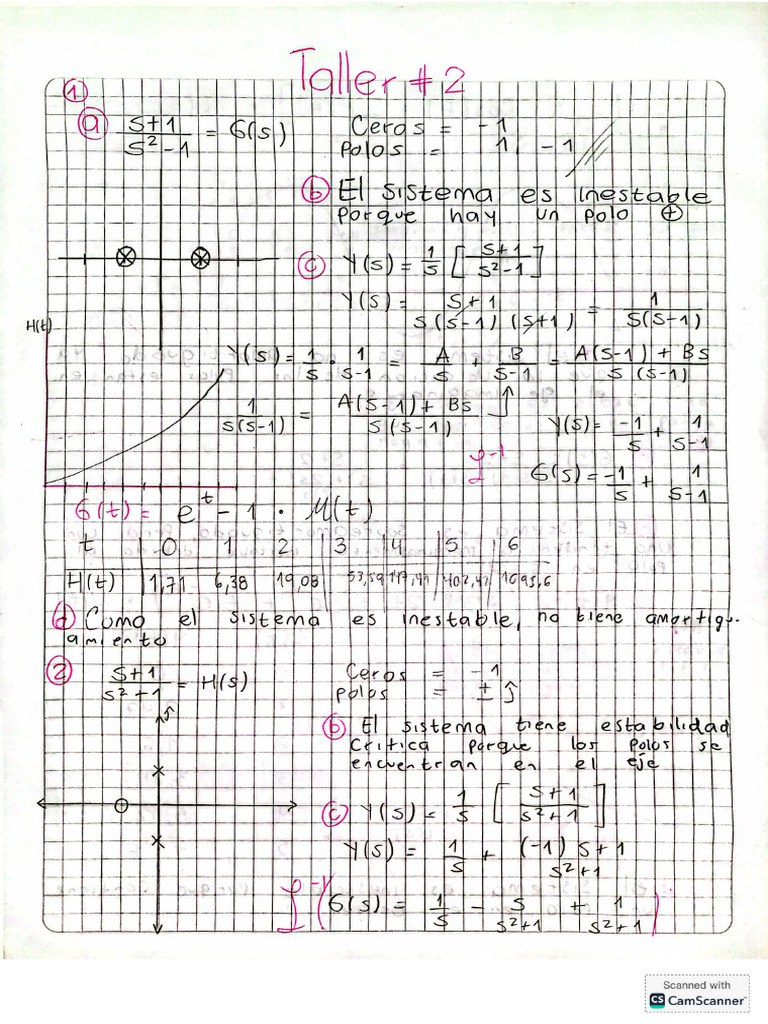 Taller #2
①
ⓐ (s+1)/(s²-1) = G(s)
Ceros = -1
Polos = 1, -1
ⓑ El sistema es Inestable
Porque hay un polo ⊕
ⓒ Y(s) = 1/s [(s+1)/(s²-1)]
Y(s) = (s+1)/(s(s-1)(s+1)) = 1/(s(s-1))
H(t)
Y(s) = 1/s · 1/(s-1) = A/s + B/(s-1) = (A(s-1) + Bs)/(s(s-1))
1/(s(s-1)) = (A(s-1) + Bs)/(s(s-1))
Y(s) = -1/s + 1/(s-1)
ℒ⁻¹ G(s) = -1/s + 1/(s-1)
G(t) = e^t - 1 · M(t)
t 0 1 2 3 4 5 6
H(t) 1,71 6,38 19,08 53,59 402,42 1095,6
ⓓ Como el sistema es inestable, no tiene amortigu-
amiento
② (s+1)/(s²+1) = H(s)
Ceros = -1
Polos = ± j
j
ⓑ El sistema tiene estabilidad
Critica porque los polos se
encuentran en el eje
ⓒ Y(s) = 1/s [(s+1)/(s²+1)]
Y(s) = 1/s + ((-1)s+1)/(s²+1)
ℒ⁻¹(G(s) = 1/s - s/(s²+1) + 1/(s²+1))
Scanned with
CS CamScanner